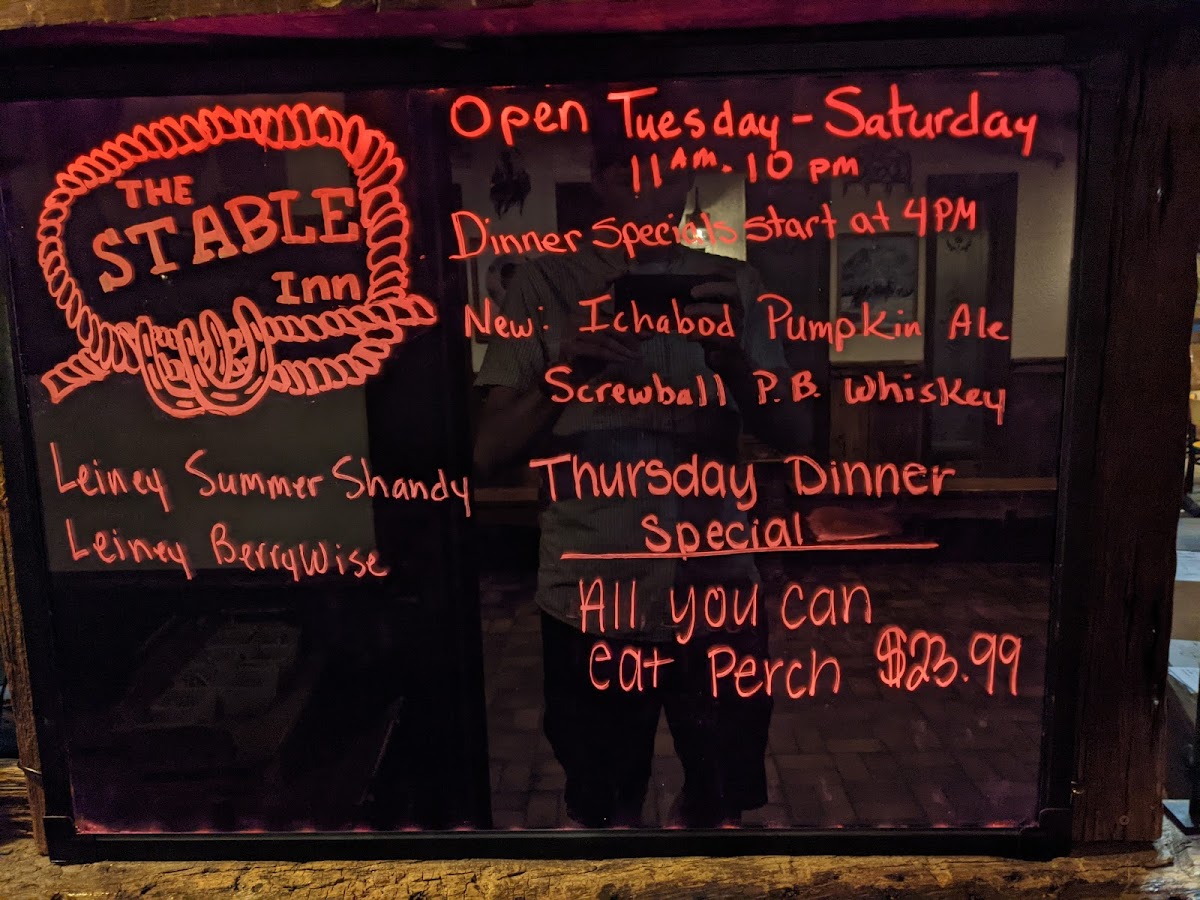 THE
STABLE
Inn
Leiney Summer Shandy
Leiney BerryWise
Open Tuesday - Saturday
11 AM - 10 pm
Dinner specials start at 4PM
New: Ichabod Pumpkin Ale
Screwball P.B. Whiskey
Thursday Dinner
Special
All you can
eat Perch $23.99